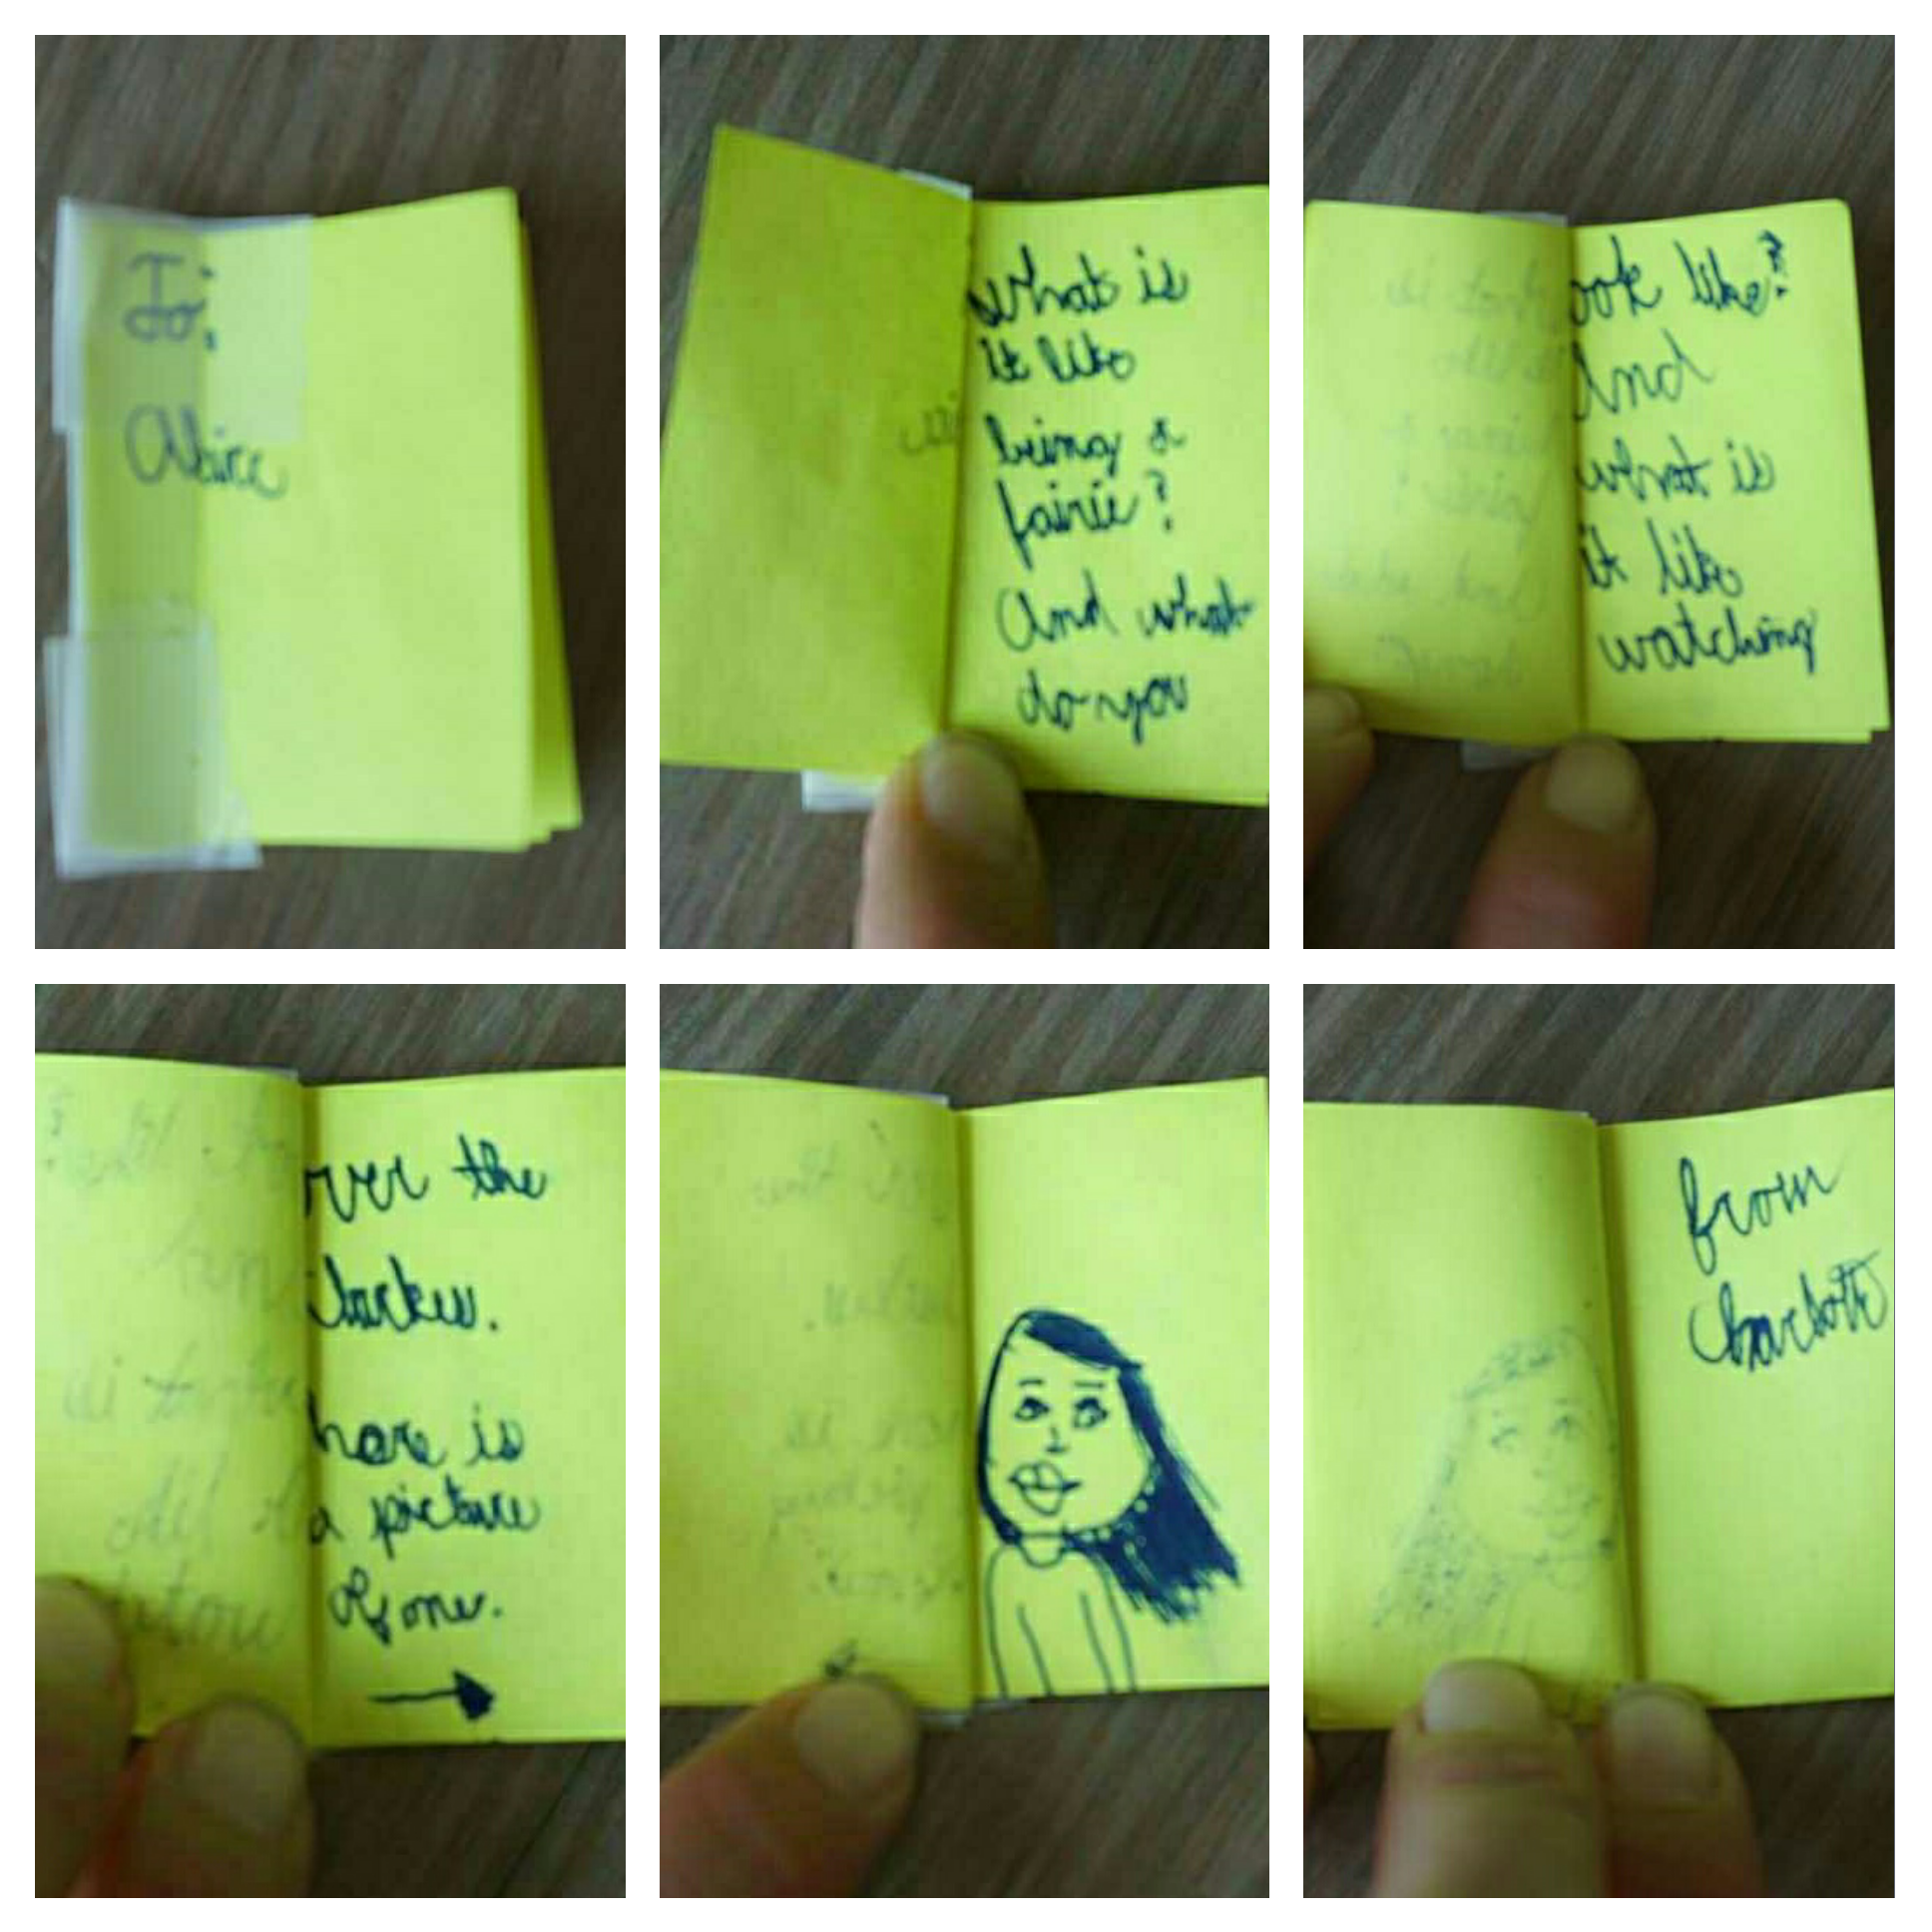 To;
what is
it like
being a
fairie?
And what
do you
ook like?
And
what is
it like
watching
over the
here is
a picture
Of one.
from
Charlotte